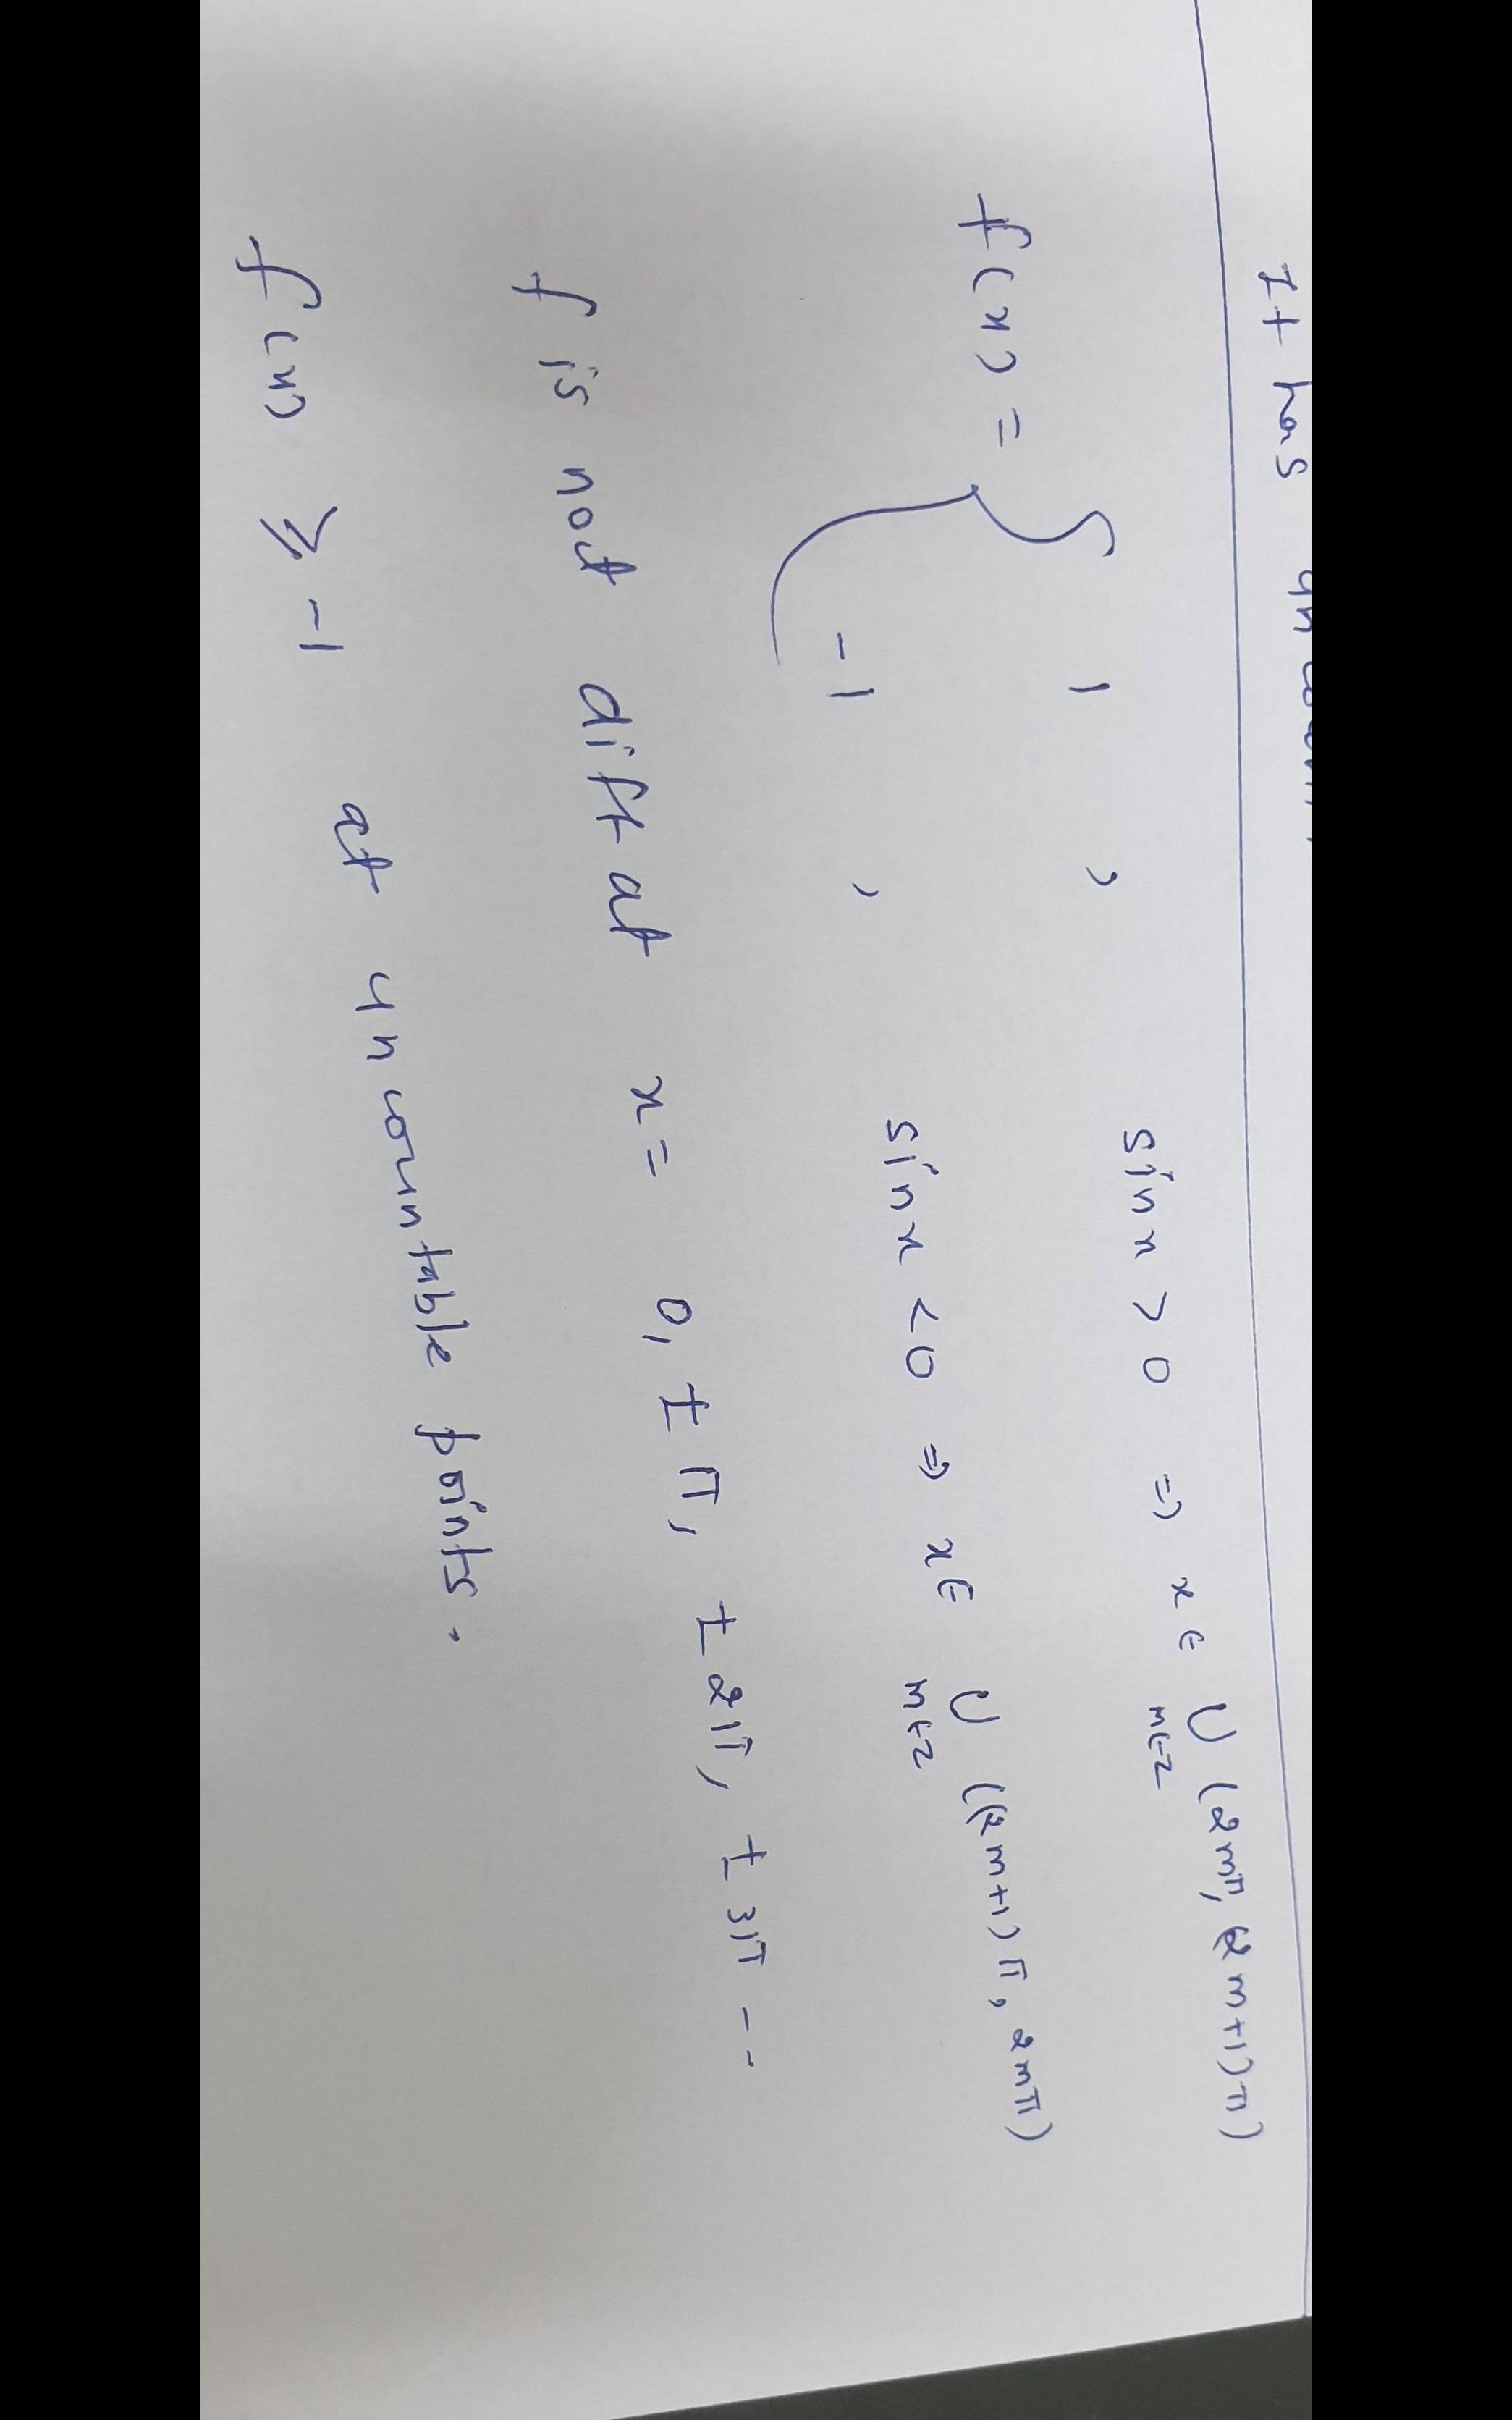 It has un
f(x) = { 1 , sin x > 0 ⇒ x ∈ ∪ m∈Z (2mπ, (2m+1)π)
-1 , sin x < 0 ⇒ x ∈ ∪ m∈Z ((2m+1)π, 2mπ)
f is not diff at x = 0, ±π, ±2π, ±3π --
f(x) ≥ -1 at uncountable points.